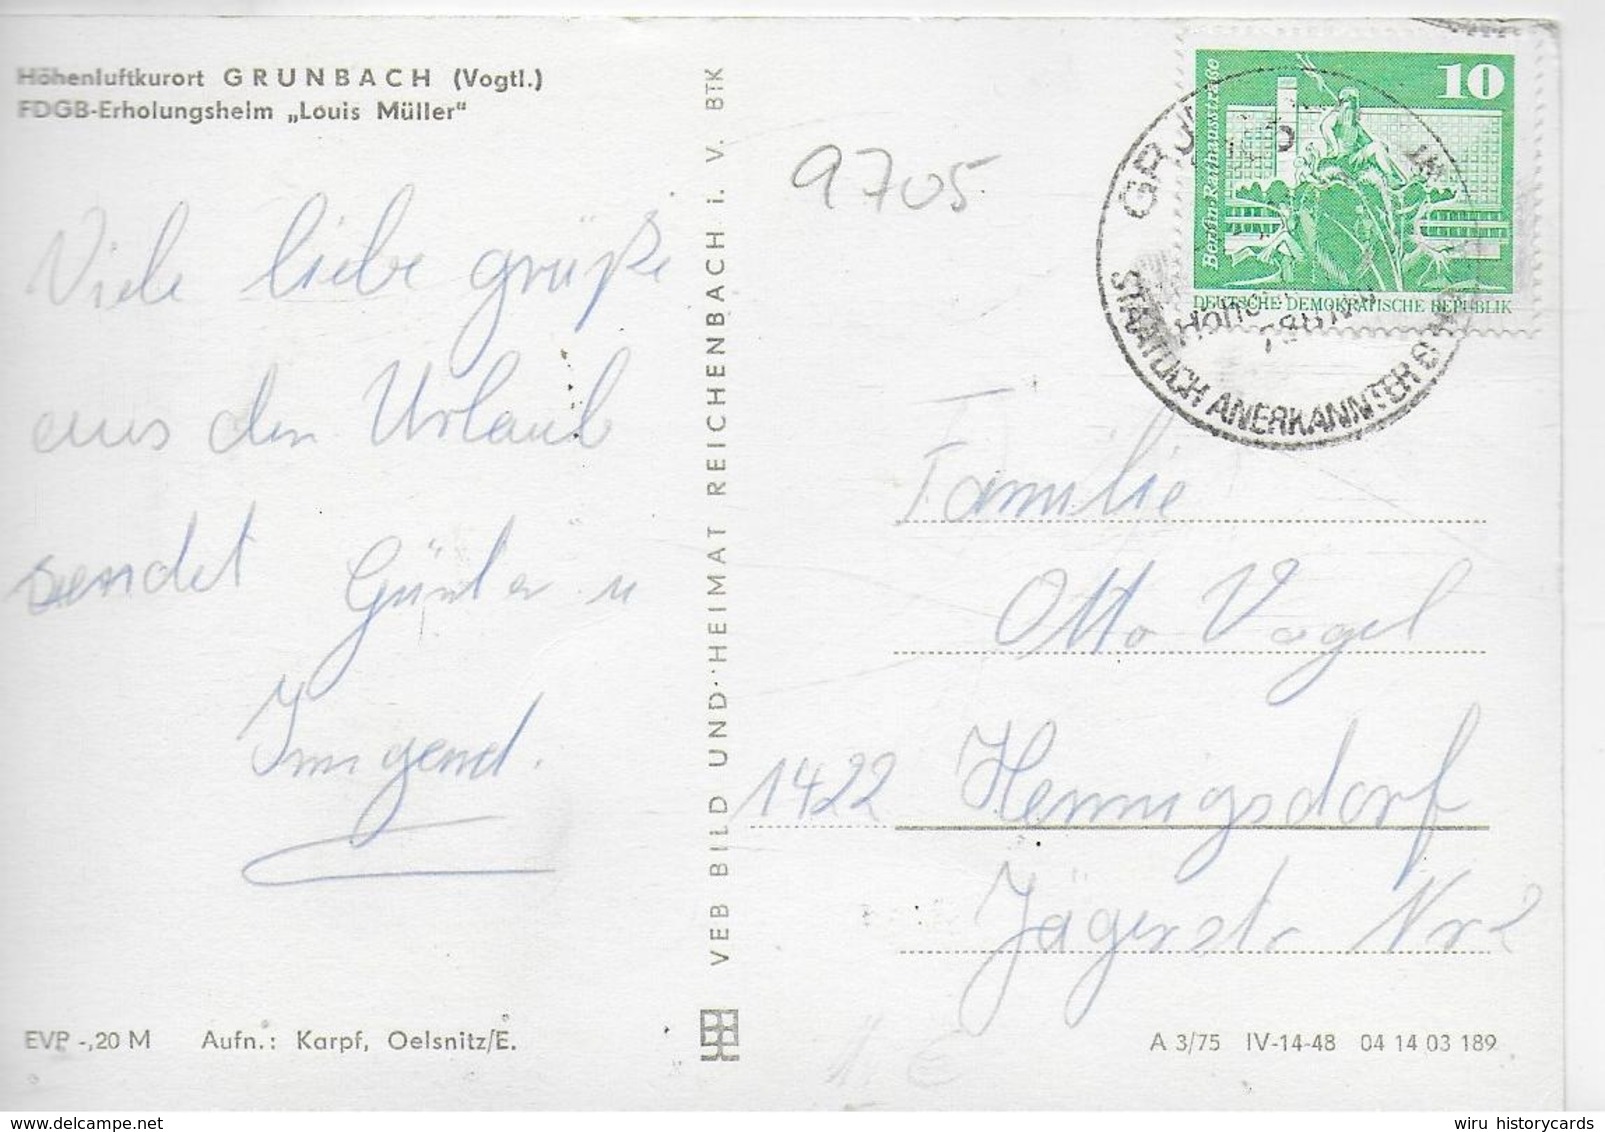 Höhenluftkurort GRUNBACH (Vogtl.)
FDGB-Erholungsheim „Louis Müller"
Viele liebe grüße
aus den Urlaub
sendet Günter u
Irmgard.
EVP -,20 M Aufn.: Karpf, Oelsnitz/E.
VEB BILD UND HEIMAT REICHENBACH i. V. BTK
9705
10
Berlin Rathausstraße
DEUTSCHE DEMOKRATISCHE REPUBLIK
STAATLICH ANERKANNTER
Familie
Otto Vogel
1422 Hennigsdorf
Jägerstr. Nr 2
A 3/75 IV-14-48 04 14 03 189
1,- €
wiru historycards